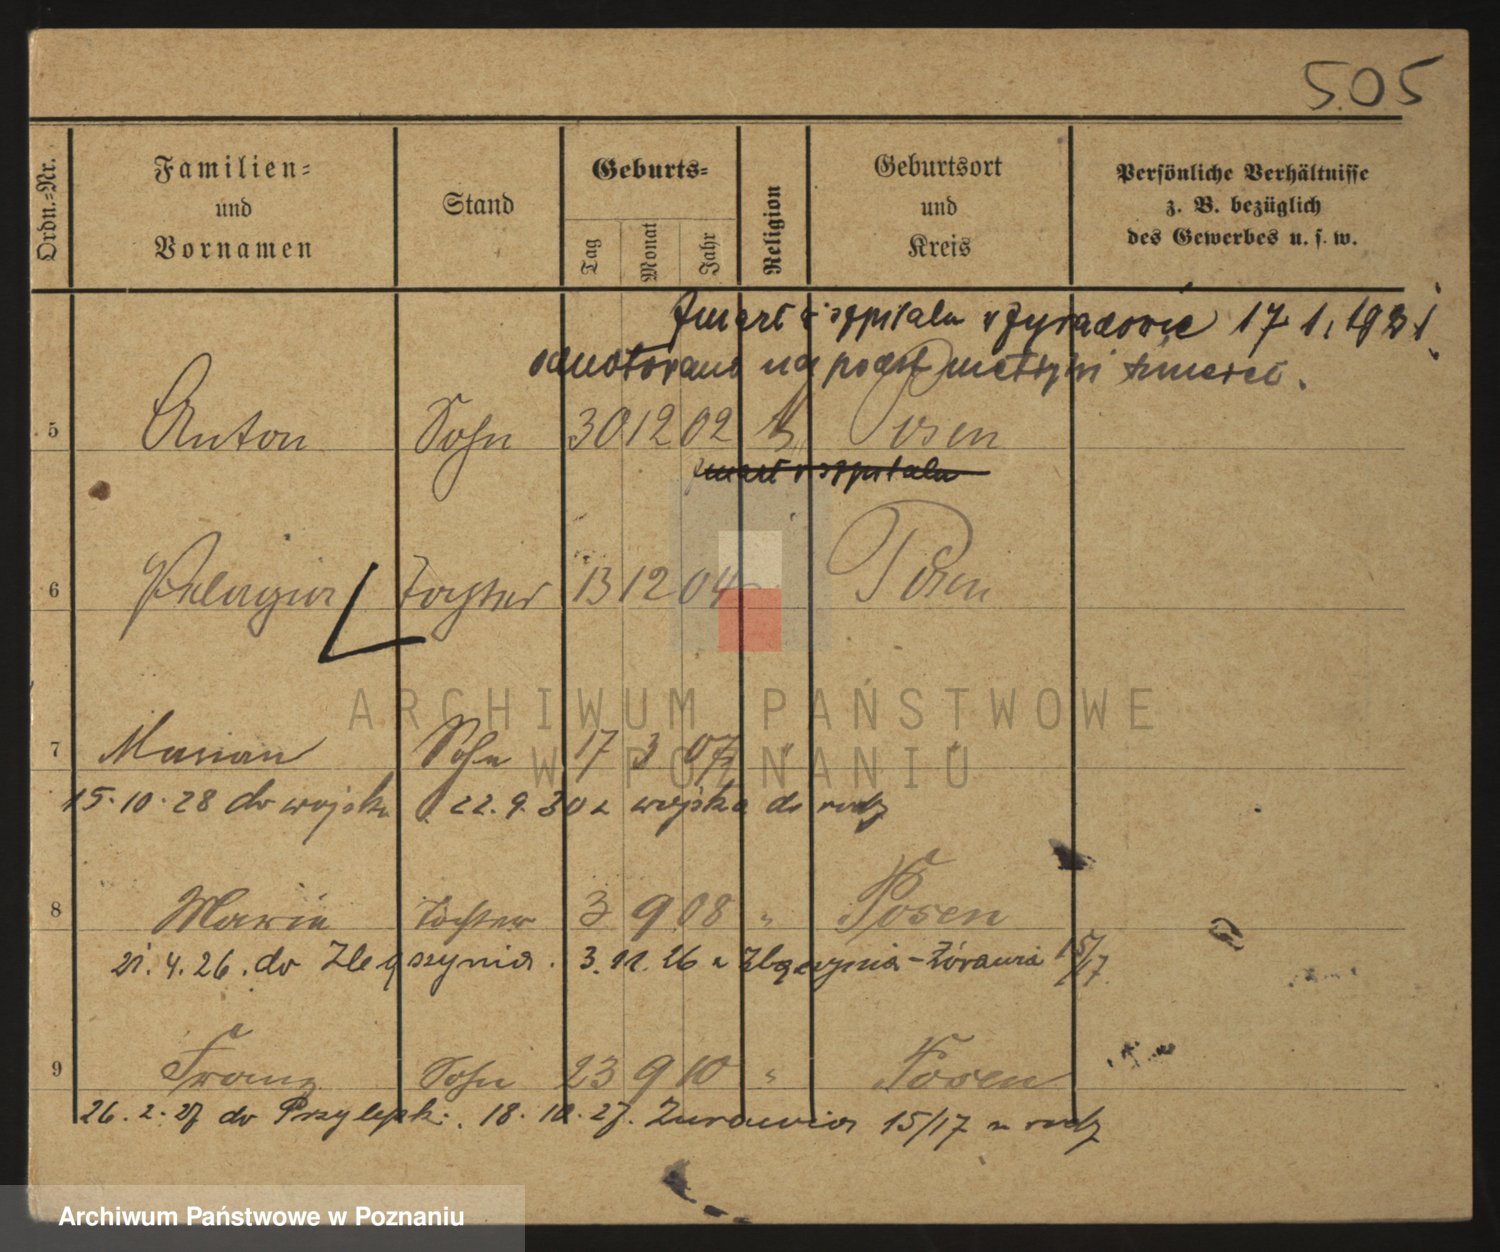 505
Ordn.-Nr.
Familien-
und
Vornamen
Stand
Geburts-
Tag
Monat
Jahr
Religion
Geburtsort
und
Kreis
Persönliche Verhältnisse
z. B. bezüglich
des Gewerbes u. s. w.
Zmarł w szpitalu w Żyrardowie 17 1. 1931
odnotowano na podst metryki śmierci.
5 Anton Sohn 30 12 02 Posen
zmarł w szpitalu
6 Pelagia Tochter 13 12 04 Posen
ARCHIWUM PAŃSTWOWE
W POZNANIU
7 Marian Sohn 17 3 07 " "
15.10.28 do wojska 22.9.30 z wojska do rodz
8 Marie Tochter 3 9 08 " Posen
21.4.26. do Zbąszynia. 3.11.26 z Zbąszynia - Żórawia 15/17
9 Franz Sohn 23 9 10 " Posen
26.2.27 do Przylepk. 18.10.27. Zurawia 15/17 z rodz
Archiwum Państwowe w Poznaniu